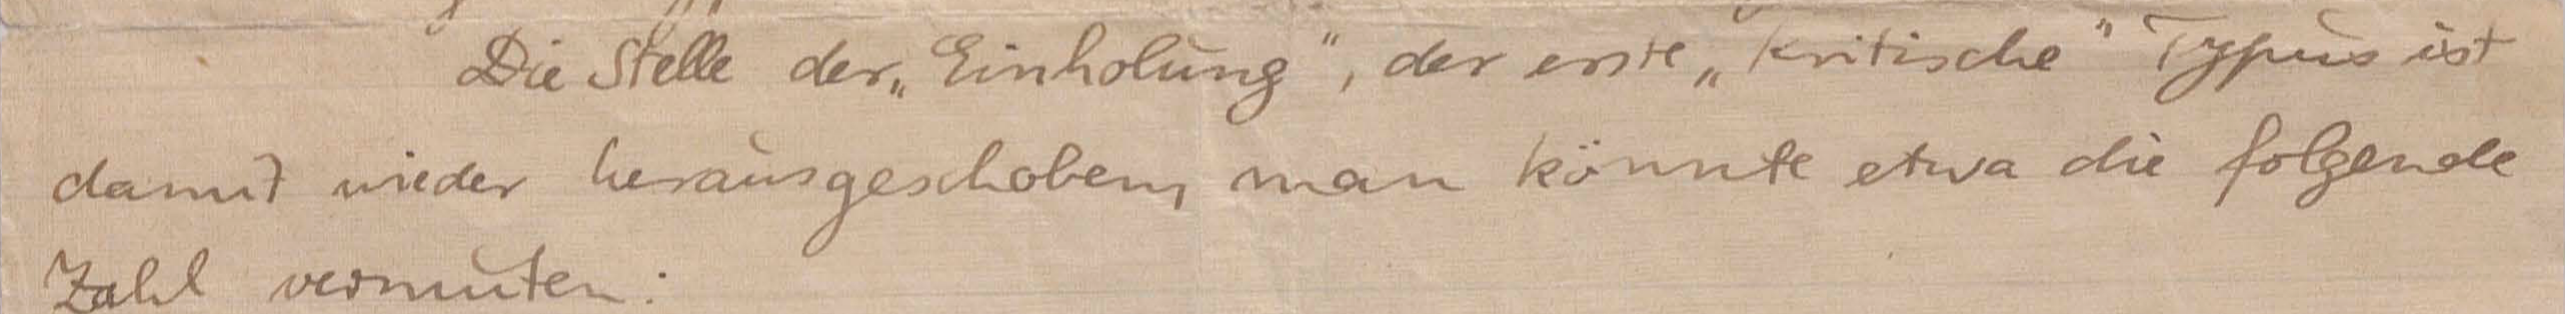 Die Stelle der „Einholung", der erste „kritische" Typus ist
damit wieder herausgeschoben, man könnte etwa die folgende
Zahl vermuten: